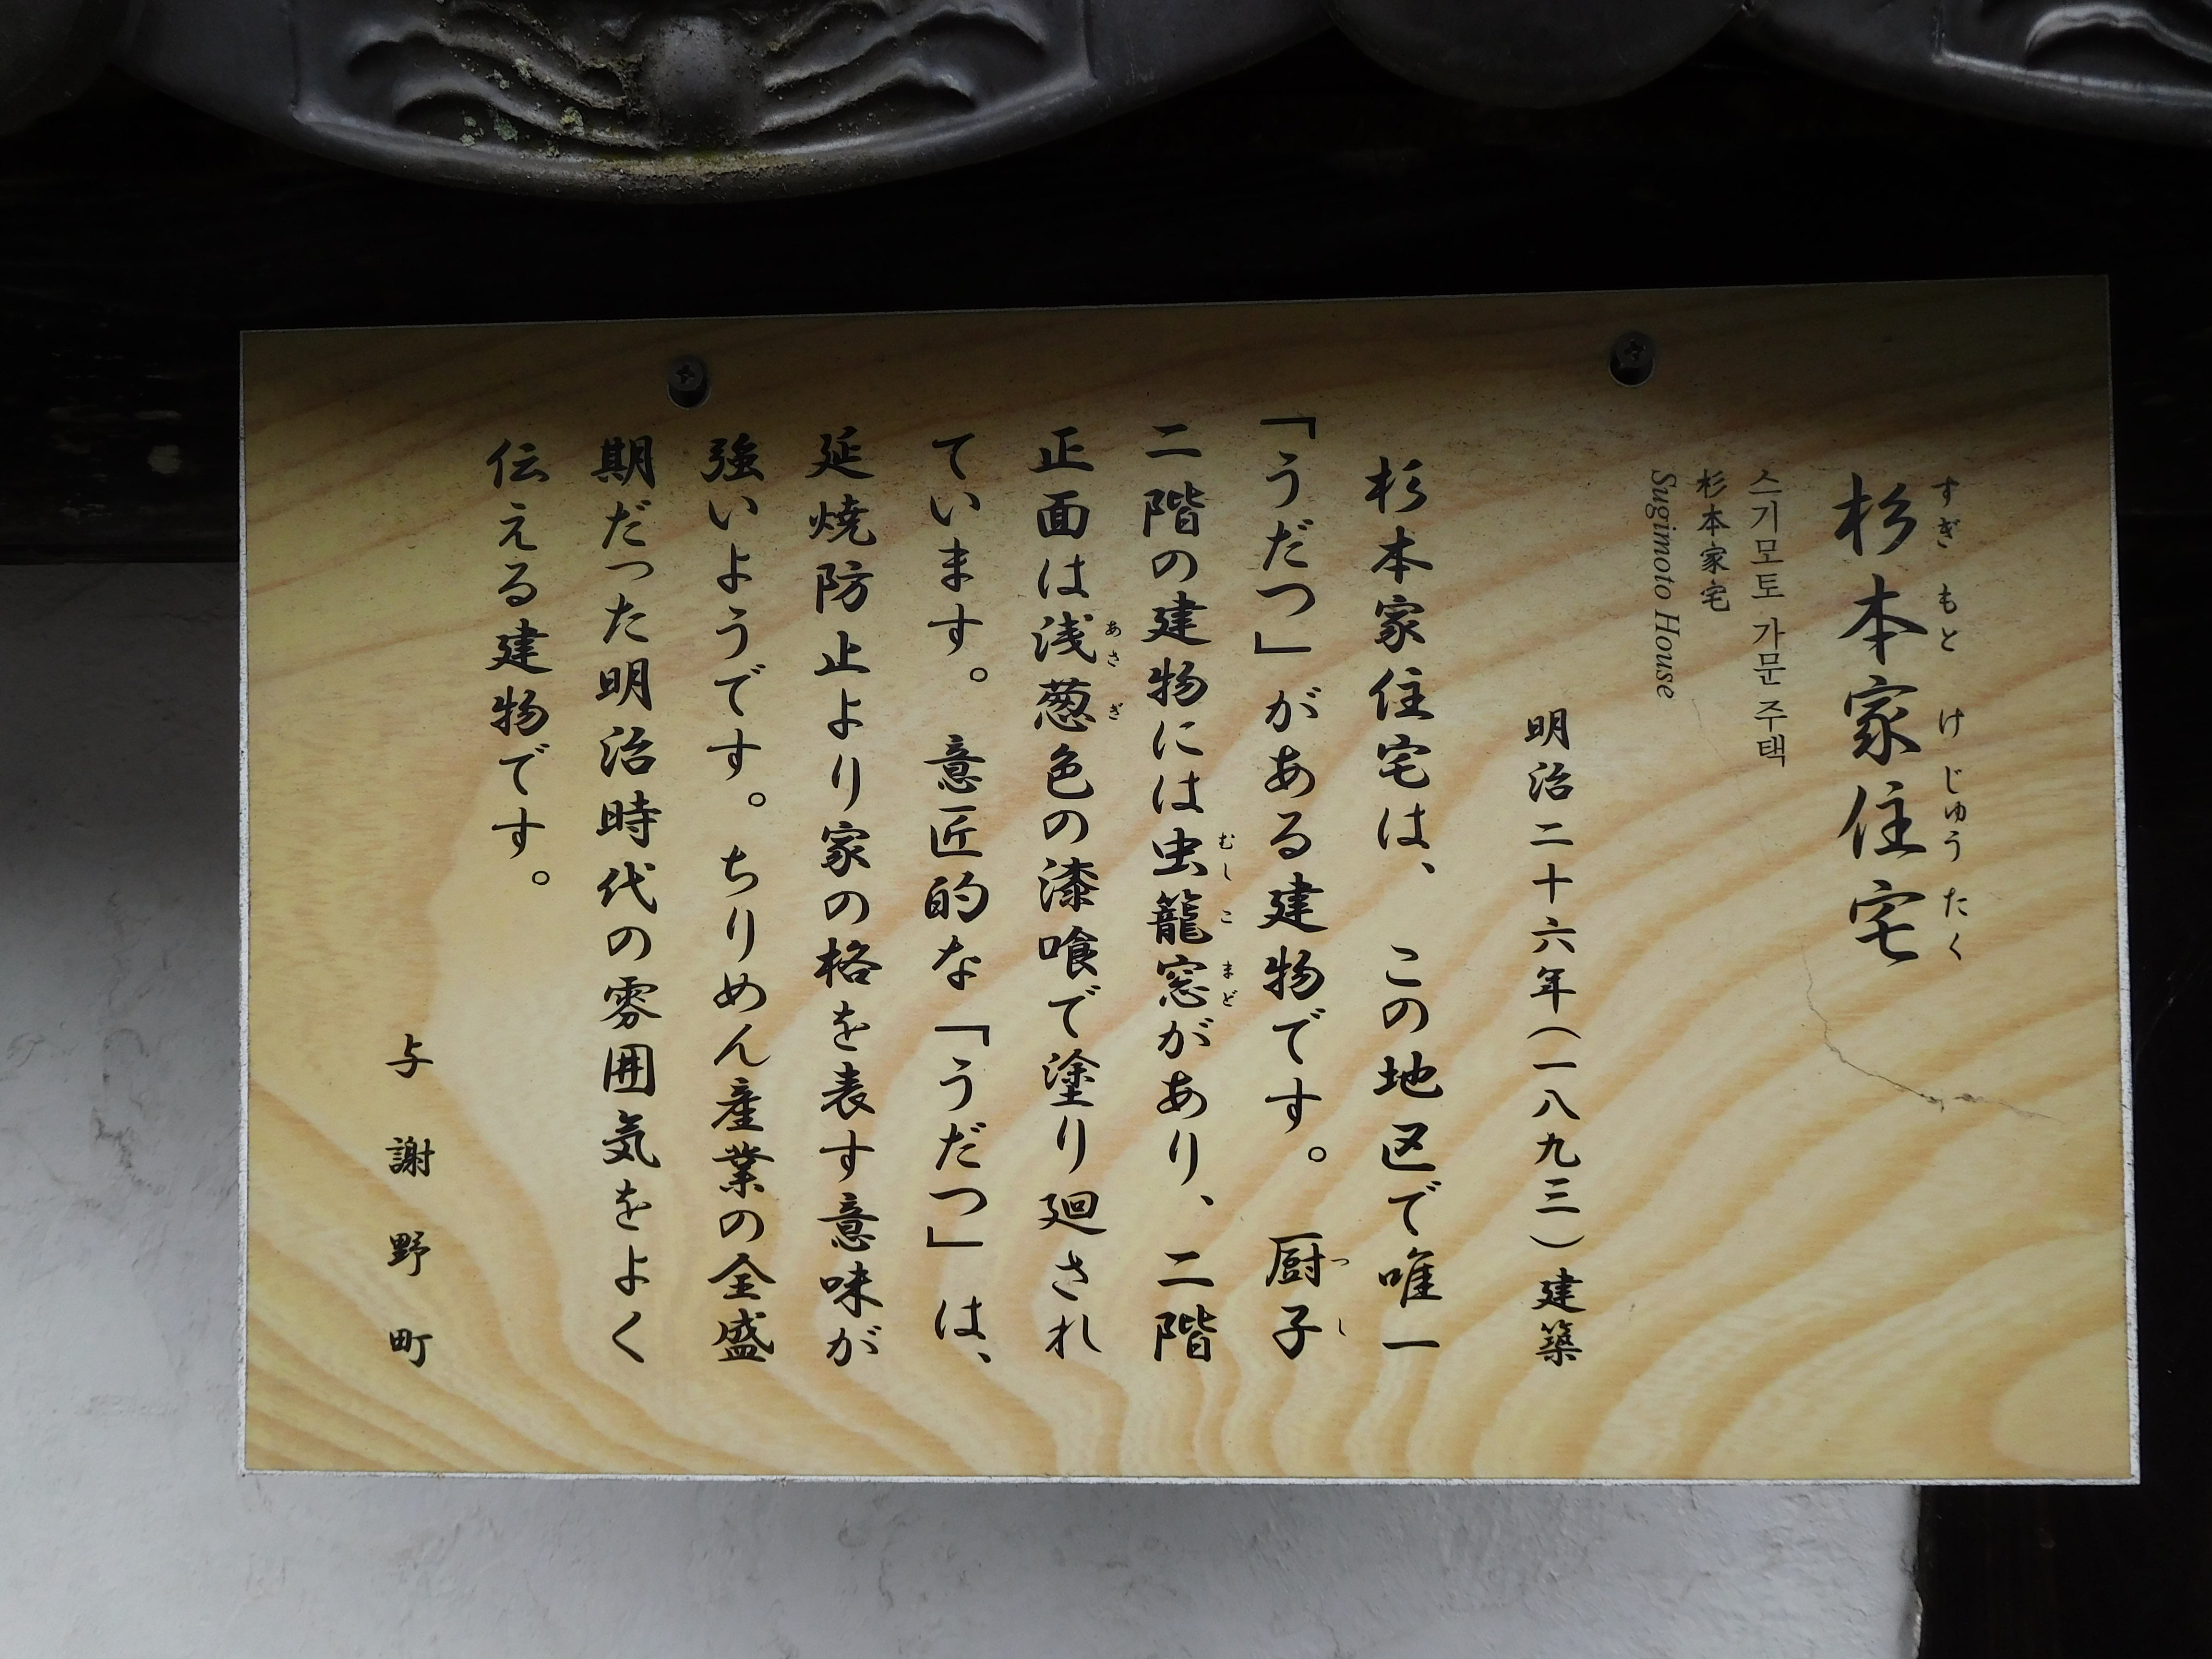 杉本家住宅
すぎもとけじゅうたく
스기모토 가문 주택
杉本家宅
Sugimoto House
明治二十六年(一八九三)建築
杉本家住宅は、この地区で唯一
「うだつ」がある建物です。厨子
つし
二階の建物には虫籠窓があり、二階
むしこまど
正面は浅葱色の漆喰で塗り廻され
あさぎ
ています。意匠的な「うだつ」は、
延焼防止より家の格を表す意味が
強いようです。ちりめん産業の全盛
期だった明治時代の雰囲気をよく
伝える建物です。
与謝野町